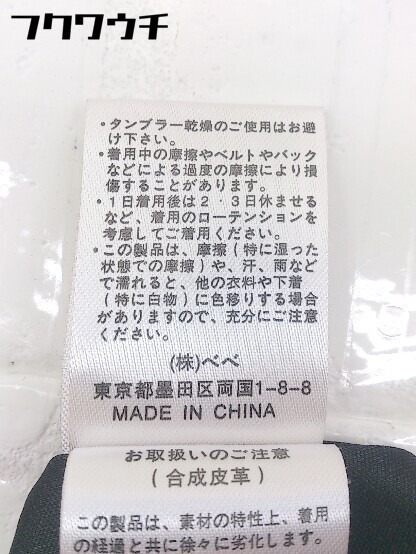 フクワウチ
・タンブラー乾燥のご使用はお避
け下さい。
・着用中の摩擦やベルトやバック
などによる過度の摩擦により損
傷することがあります。
・1日着用後は2・3日休ませる
など、着用のローテンションを
考慮してご着用ください。
・この製品は、摩擦(特に湿った
状態での摩擦)や、汗、雨など
で濡れると、他の衣料や下着
(特に白物)に色移りする場合
がありますので、充分にご注意
ください。
(株)べべ
東京都墨田区両国1-8-8
MADE IN CHINA
お取扱いのご注意
(合成皮革)
この製品は、素材の特性上、着用
の経過と共に徐々に劣化します。